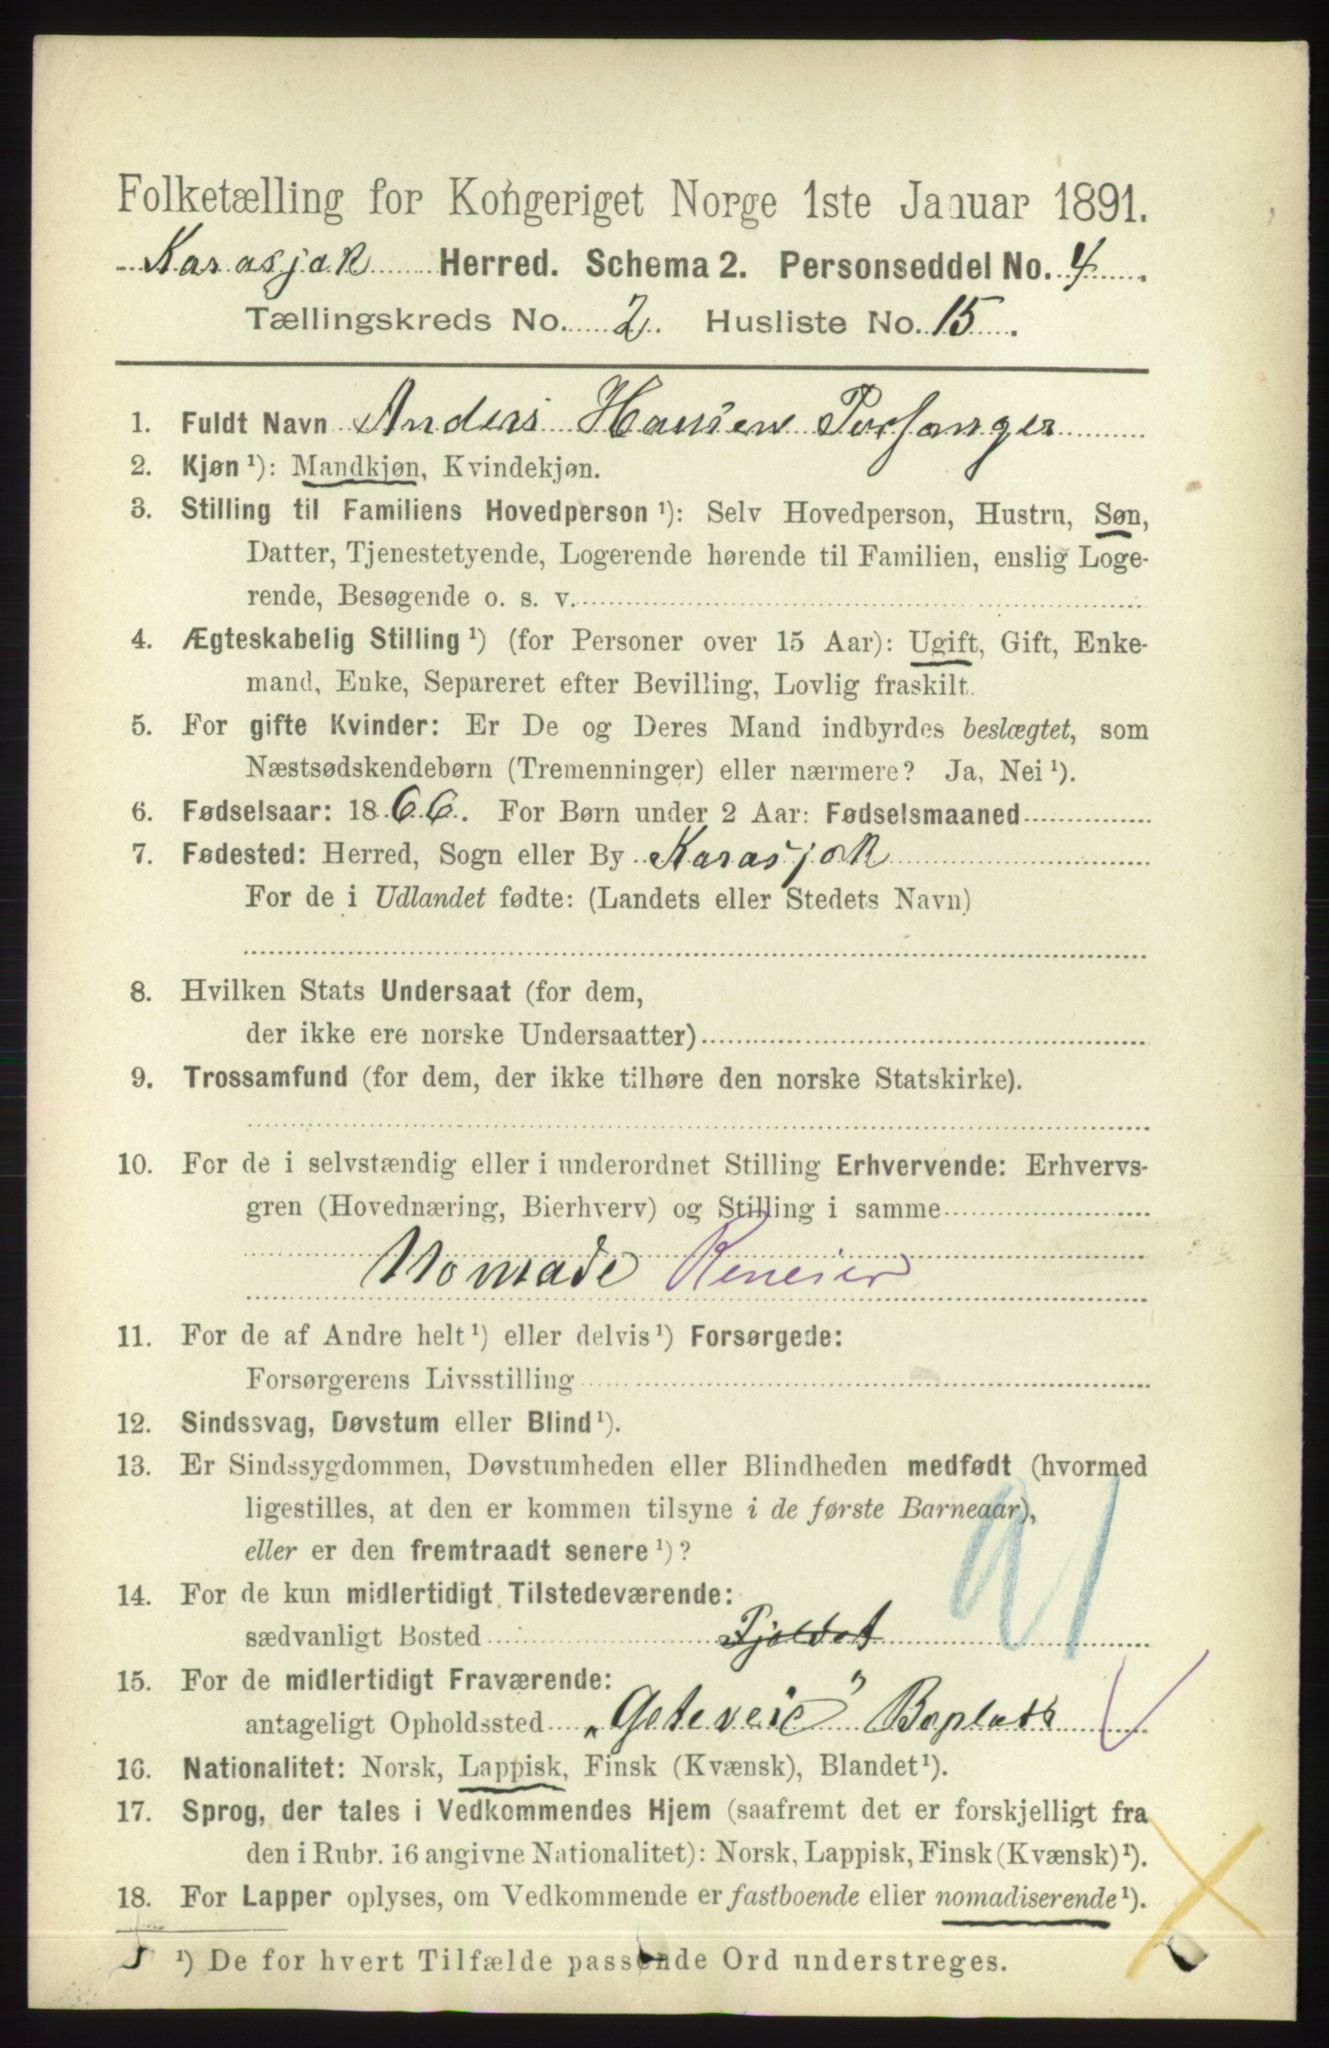 Folketælling for Kongeriget Norge 1ste Januar 1891.
Karasjok Herred. Schema 2. Personseddel No. 4.
Tællingskreds No. 2. Husliste No. 15.
1. Fuldt Navn Anders Hansen Porsanger
2. Kjøn ¹): Mandkjøn, Kvindekjøn.
3. Stilling til Familiens Hovedperson ¹): Selv Hovedperson, Hustru, Søn,
Datter, Tjenestetyende, Logerende hørende til Familien, enslig Loge-
rende, Besøgende o. s. v.
4. Ægteskabelig Stilling ¹) (for Personer over 15 Aar): Ugift, Gift, Enke-
mand, Enke, Separeret efter Bevilling, Lovlig fraskilt.
5. For gifte Kvinder: Er De og Deres Mand indbyrdes beslægtet, som
Næstsødskendebørn (Tremenninger) eller nærmere? Ja, Nei ¹).
6. Fødselsaar: 1866. For Børn under 2 Aar: Fødselsmaaned
7. Fødested: Herred, Sogn eller By Karasjok
For de i Udlandet fødte: (Landets eller Stedets Navn)
8. Hvilken Stats Undersaat (for dem,
der ikke ere norske Undersaatter)
9. Trossamfund (for dem, der ikke tilhøre den norske Statskirke).
10. For de i selvstændig eller i underordnet Stilling Erhvervende: Erhvervs-
gren (Hovednæring, Bierhverv) og Stilling i samme
Nomade Reneier
11. For de af Andre helt ¹) eller delvis ¹) Forsørgede:
Forsørgerens Livsstilling
12. Sindssvag, Døvstum eller Blind ¹).
13. Er Sindssygdommen, Døvstumheden eller Blindheden medfødt (hvormed
ligestilles, at den er kommen tilsyne i de første Barneaar),
eller er den fremtraadt senere ¹)?
91
14. For de kun midlertidigt Tilstedeværende:
sædvanligt Bosted
15. For de midlertidigt Fraværende:
antageligt Opholdssted „Geteveie" Boplats
16. Nationalitet: Norsk, Lappisk, Finsk (Kvænsk), Blandet ¹).
17. Sprog, der tales i Vedkommendes Hjem (saafremt det er forskjelligt fra
den i Rubr. 16 angivne Nationalitet): Norsk, Lappisk, Finsk (Kvænsk) ¹).
18. For Lapper oplyses, om Vedkommende er fastboende eller nomadiserende ¹).
¹) De for hvert Tilfælde passende Ord understreges.